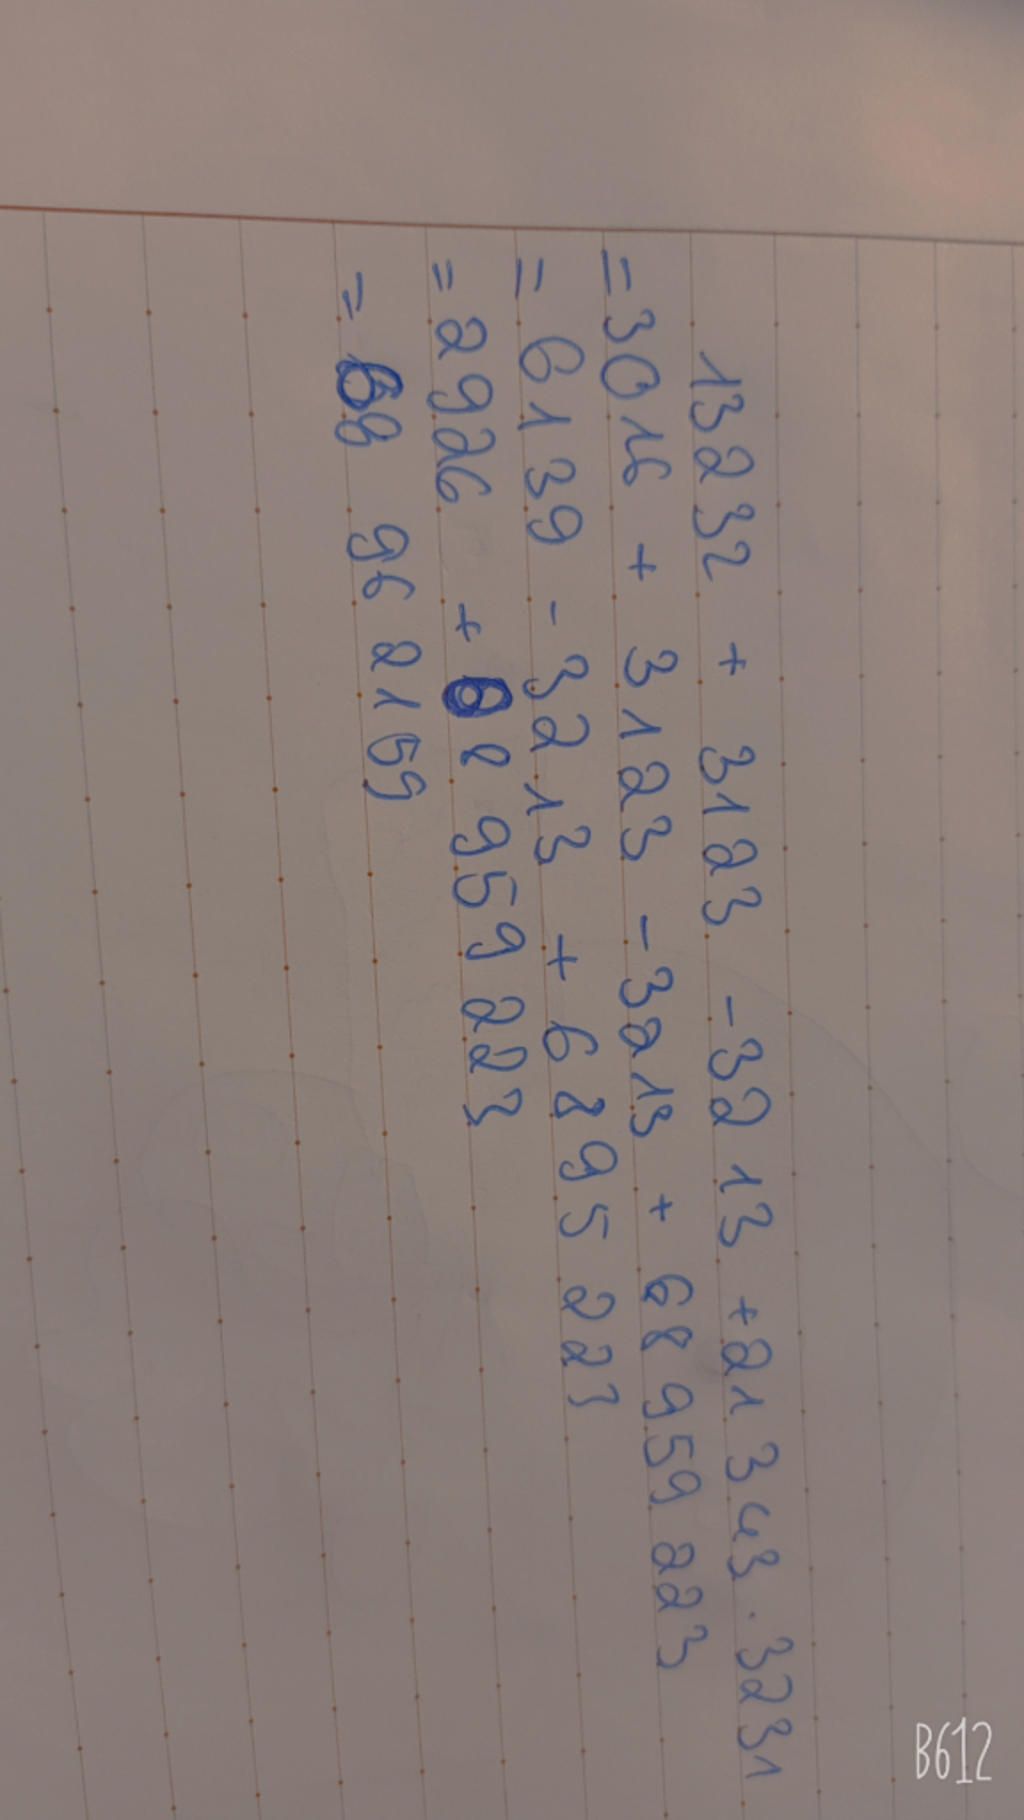 13232 + 3123 - 3213 + 21343 . 3231
= 3016 + 3123 - 3213 + 68 959 223
= 6139 - 3213 + 6895 223
= 2926 + 68 959 223
= 68 962159
B612